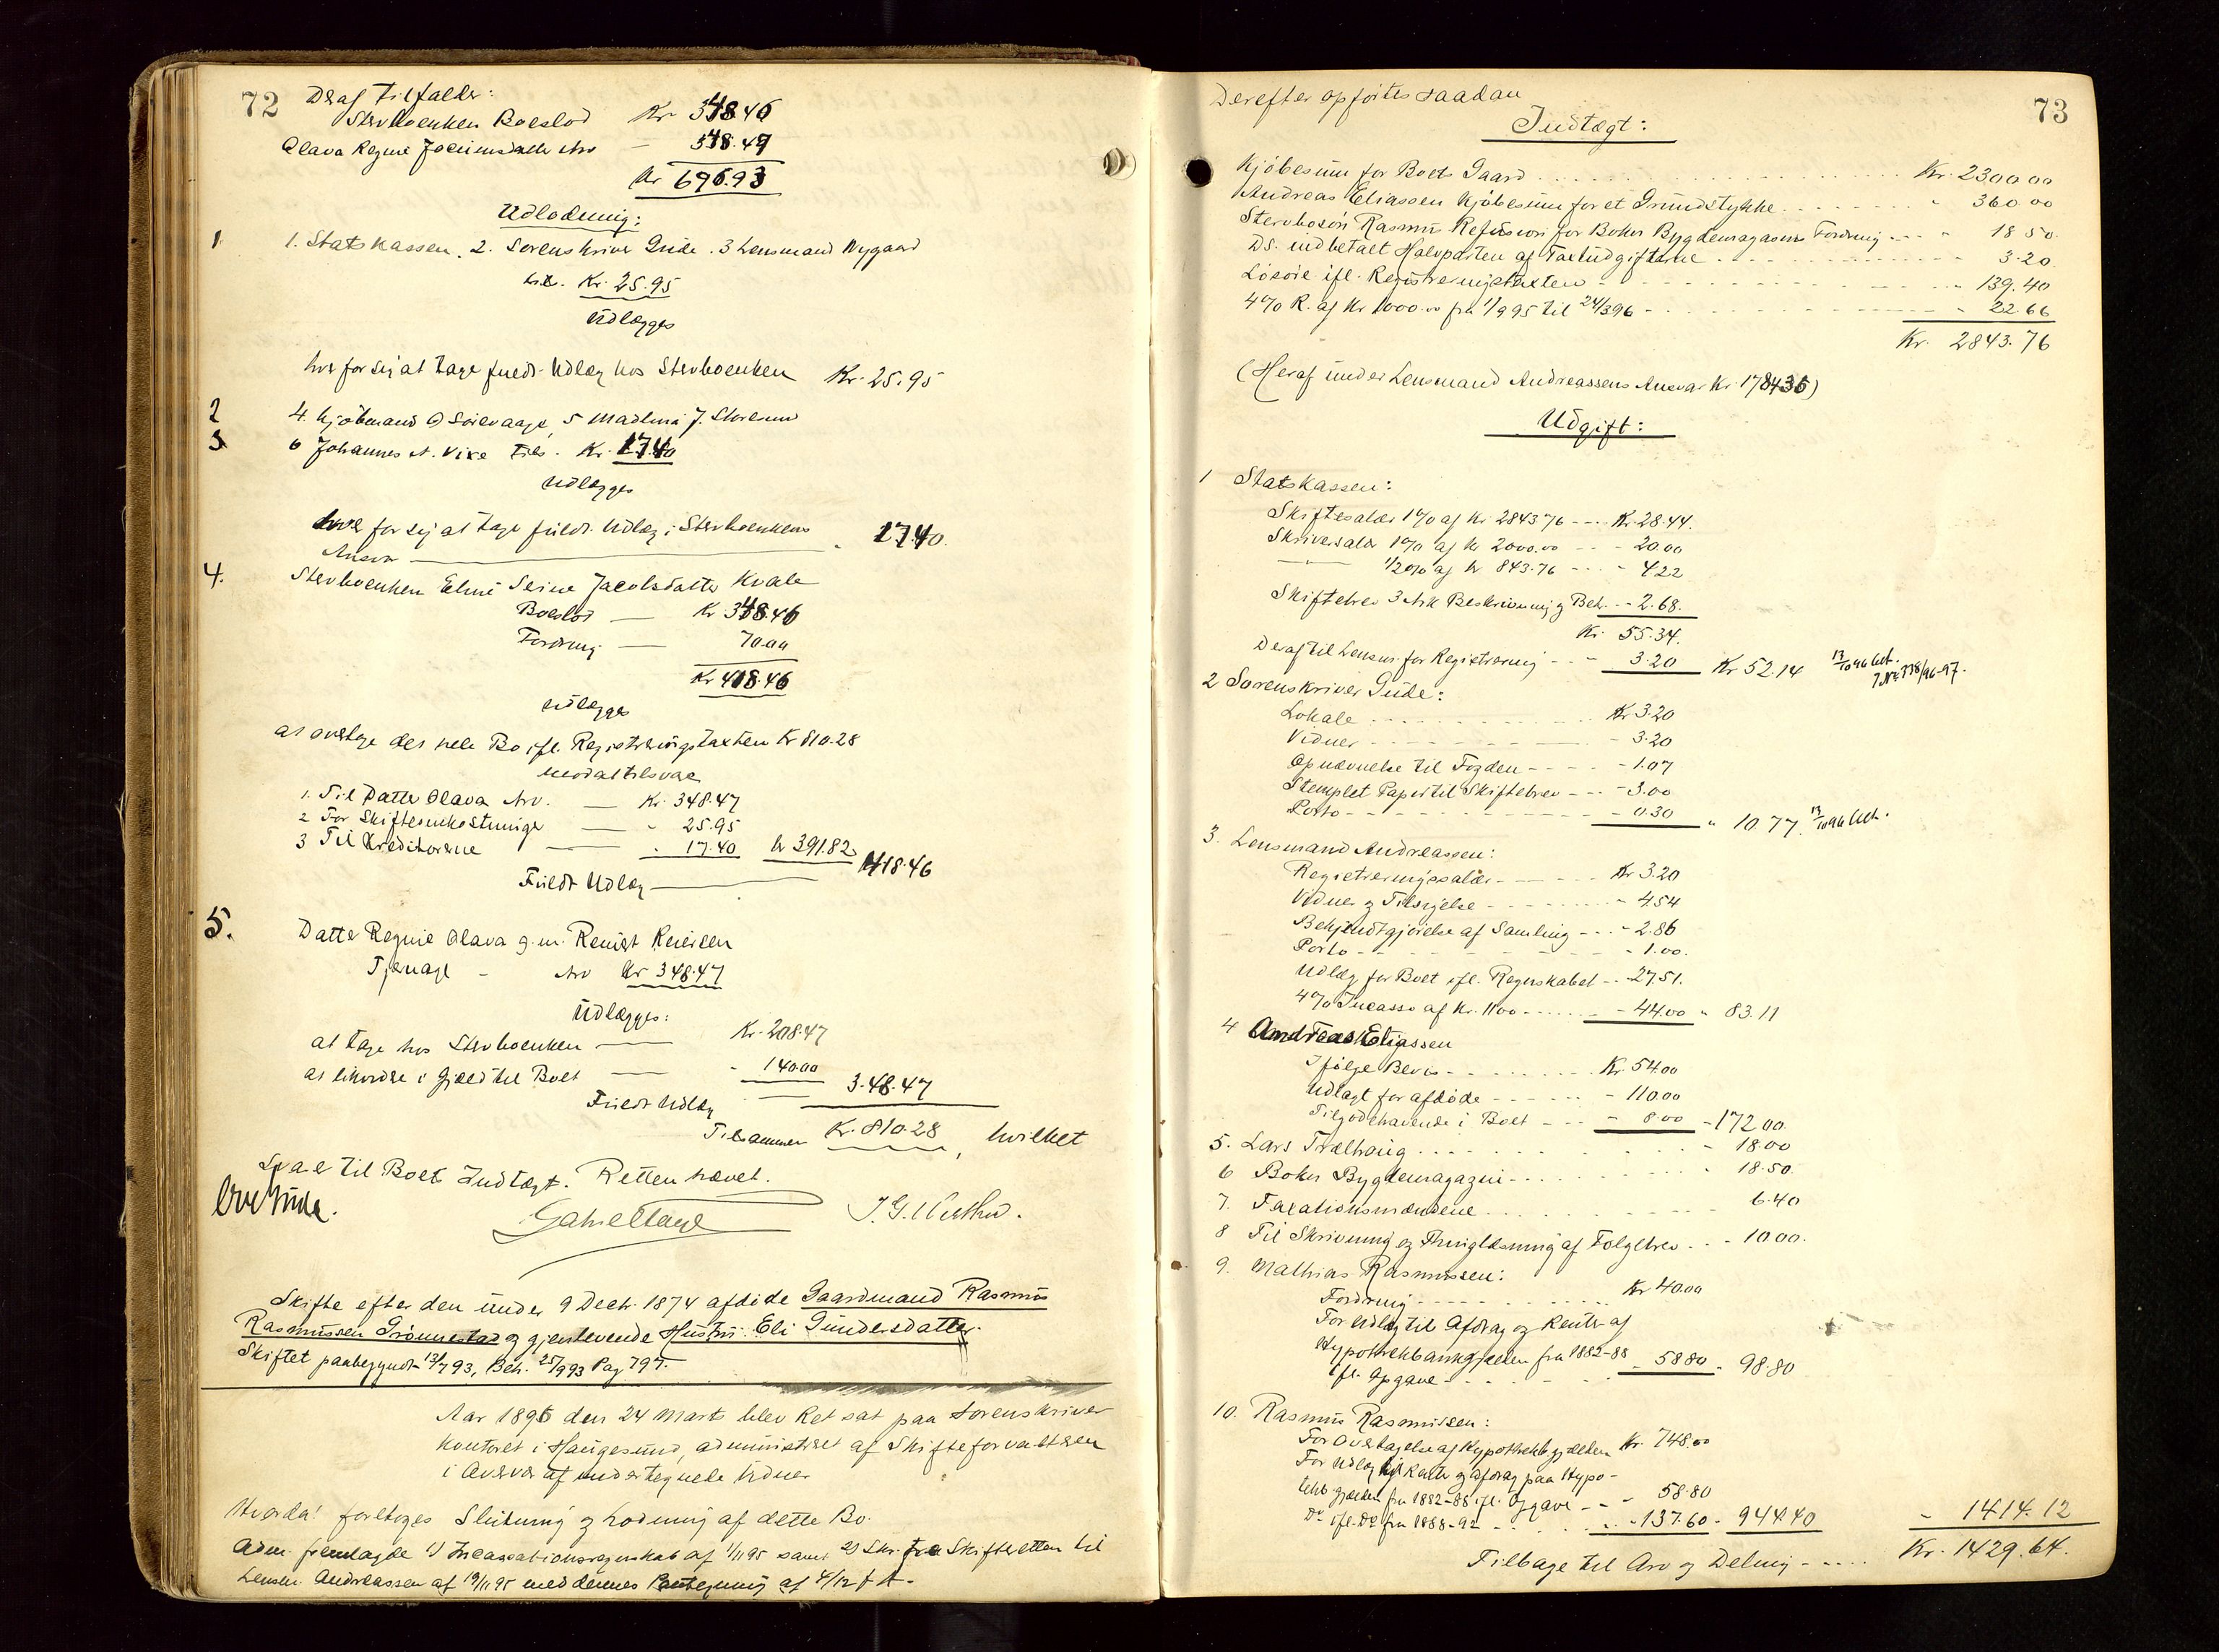 72
Deraf tilfalder:
Stervboenken Boeslod Kr 348.46
Olava Regine Arv - 348.47
Kr 696.93
Udlodning:
1 1. Statskassen. 2. Sorenskriver Gude. 3 Lensmand Nygaard
tils. Kr. 25.95
Udlægges
hver for sig at tage fuldt Udlæg hos Stervboenken Kr. 25.95
2 4. Kjøbmand O Soievaage, 5 Madlena J.
3 6 Johannes A. Vike tils. Kr. 17.40
Udlægges
hver for sig at tage fuldt Udlæg i Stervboenkens
Ansvar - 17.40.
4. Stervboenken Eline Serine Jacobsdatter Kvale
Boeslod — Kr 348.46
Fordring — 70.00
Kr 418.46
Udlægges
at overtage det hele Bo ifl. Registreringstaxten Kr 810.28
mod at tilsvare
1. Til Datter Olava Arv. — Kr. 348.47
2 For Skifteomkostninger — - 25.95
3 Til Kreditorerne — - 17.40 Kr 391.82
Fuldt Udlæg — 418.46
5. Datter Regine Olava g.m. Reinert Reiersen
Tjernagel - Arv Kr 348.47
Udlægges:
at tage hos Stervboenken — Kr. 208.47
at likvidere i Gjæld til Boet — - 140.00
Fuldt Udlæg — 348.47
Tilsammen Kr. 810.28, hvilket
svarer til Boets Indtægt. Retten hævet.
Ove Gude.
J. G.
Skifte efter den under 9 Decbr. 1874 afdøde Gaardmand Rasmus
Rasmussen Grønnestad og gjenlevende Hustru Eli Gundersdatter.
Skiftet paabegyndt 13/7 93, Beh. 25/9 93 Pag 797.
Aar 1896 den 24 Marts blev Ret sat paa Sorenskriver
kontoret i Haugesund, administreret af Skifteforvalteren
i Overvær af undertegnede Vidner
Hvorda! foretoges Slutning og Lodning af dette Bo.
Adm. fremlagde 1) Incassationsregnskab af 1/11 95 samt 2) Skr. fra Skifteretten til
Lensm. Andreassen af 19/11 95 med dennes Paategning af 4/12 f. A.
73
Derefter opførtes saadan
Indtægt:
Kjøbesum for Boets Gaard Kr. 2300.00
Andreas Eliassen Kjøbesum for et Grundstykke - 360.00
Stervbosøn Rasmus Refusion for Bokn Bygdemagasins Fordring - 18.50
Ds. indbetalt Halvparten af Taxtudgifterne - 3.20
Løsøre ifl. Registreringstaxten - 139.40
4% R. af Kr 1000.00 fra 1/9 95 til 24/3 96 - 22.66
Kr. 2843.76
(Heraf under Lensmand Andreassens Ansvar Kr. 1784.36)
Udgift:
1 Statskassen:
Skiftesalær 1% af Kr 2843.76 - Kr. 28.44.
Skriversalær 1% af Kr 2000.00 - 20.00
1/2% af Kr 843.76 - 4.22
Skiftebrev 3 Ark Beskrivning og Bek. - 2.68.
Kr. 55.34.
Deraf til Lensm. for Registrering - 3.20 Kr 52.14 13/10 96 bet. J.No. 378/96-97.
2 Sorenskriver Gude:
Lokale Kr 3.20
Vidner - 3.20
Opnævnelse til Fogden - 1.07
Stemplet Papir til Skiftebrev - 3.00
Porto - 0.30 - 10.77. 13/10 96 bet.
3. Lensmand Andreassen:
Registreringssalær Kr 3.20
Vidner og Tilsigelse - 4.54
Bekjendtgjørelse af Samling - 2.86
Porto - 1.00.
Udlæg for Boet ifl. Regnskabet - 27.51.
4% Incasso af Kr. 1100 - 44.00 - 83.11
4 Andreas Eliassen
Ifølge Bevis Kr. 54.00
Udlagt for afdøde - 110.00
Tilgodehavende i Boet - 8.00 - 172.00.
5. Lars Trælhaug - 18.00
6 Bokn Bygdemagazin - 18.50.
7. Taxationsmændene 6.40
8 Til Skrivning og Thinglæsning af Følgebrev - 10.00.
9. Mathias Rasmussen:
Fordring Kr 40.00
For Udlæg til Afdrag og Renter af
Hypothekbankgjælden fra 1882-88
ifl. Opgave - 58.80 - 98.80
10. Rasmus Rasmussen:
For Overtagelse af Hypothekbgjælden Kr. 748.00
For Udlæg til Renter og Afdrag paa Hypo-
thekbgjælden fra 1882-88 ifl. Opgave - 58.80
Do ifl. Do fra 1888-92 - 137.60 - 944.40 - 1414.12
Tilbage til Arv og Deling Kr. 1429.64.